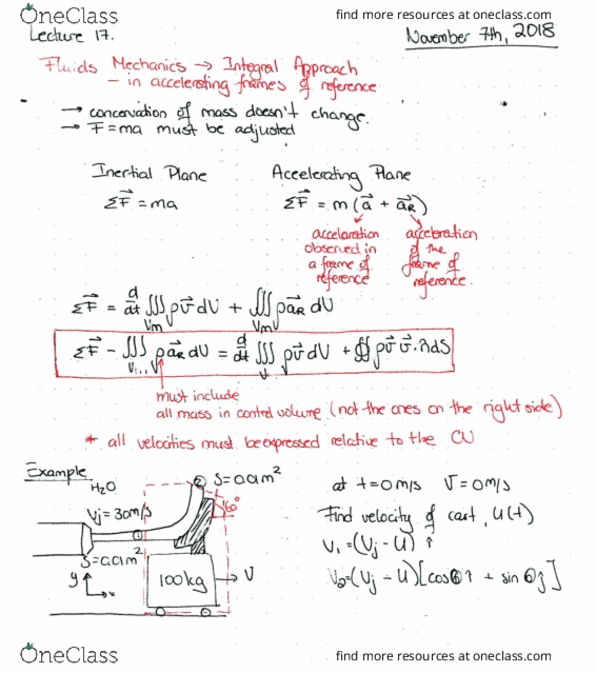 OneClass find more resources at oneclass.com
Lecture 17. November 7th, 2018
Fluids Mechanics → Integral Approach
- in accelerating frames of reference
→ concervation of mass doesn't change.
→ F = ma must be adjusted
Inertial Plane Accelerating Plane
ΣF⃗ = ma ΣF⃗ = m (a⃗ + a⃗R)
accelaration acceleration
observed in of the
a frame of frame of
reference reference.
ΣF⃗ = d/dt ∭Vm ρv⃗ dV + ∭Vm ρa⃗R dV
ΣF⃗ - ∭ ρa⃗R dV = d/dt ∭ ρv⃗ dV + ∯ ρv⃗ v⃗·n̂ dS
must include
all mass in control volume (not the ones on the right side)
* all velocities must be expressed relative to the CV
Example
H2O ② S=0.01m² at t=0m/s V=0m/s
Vj = 30m/s 60° Find velocity of cart, U(t)
① V1 = (Vj - U) î
S=0.01m²
y x 100kg → V V2=(Vj - U)[cosθ î + sin θ ĵ]
OneClass find more resources at oneclass.com